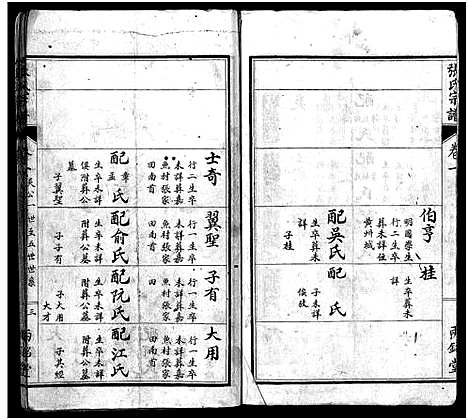 張氏宗譜
卷一
伯亨
明國學生
行二生卒
未詳葬
黃州城
配吳氏
生卒葬未
詳
子桂
桂
生卒葬未
詳
配 氏
子未詳
俟考
士奇
行二生卒
未詳葬嘉
魚村張家
田南首
配 氏
生卒未詳
俱附葬公
墓
子翼聖
翼聖
行一生卒
未詳葬嘉
魚村張家
田南首
配俞氏
生卒未詳
附葬公墓
子子有
子有
行一生卒
未詳葬嘉
魚村張家
田南首
配阮氏
生卒未詳
附葬公墓
子大用
大才
大用
行一生卒
未詳葬嘉
魚村張家
田南首
配江氏
生卒未詳
附葬公墓
子其經
一世至五世世表
三